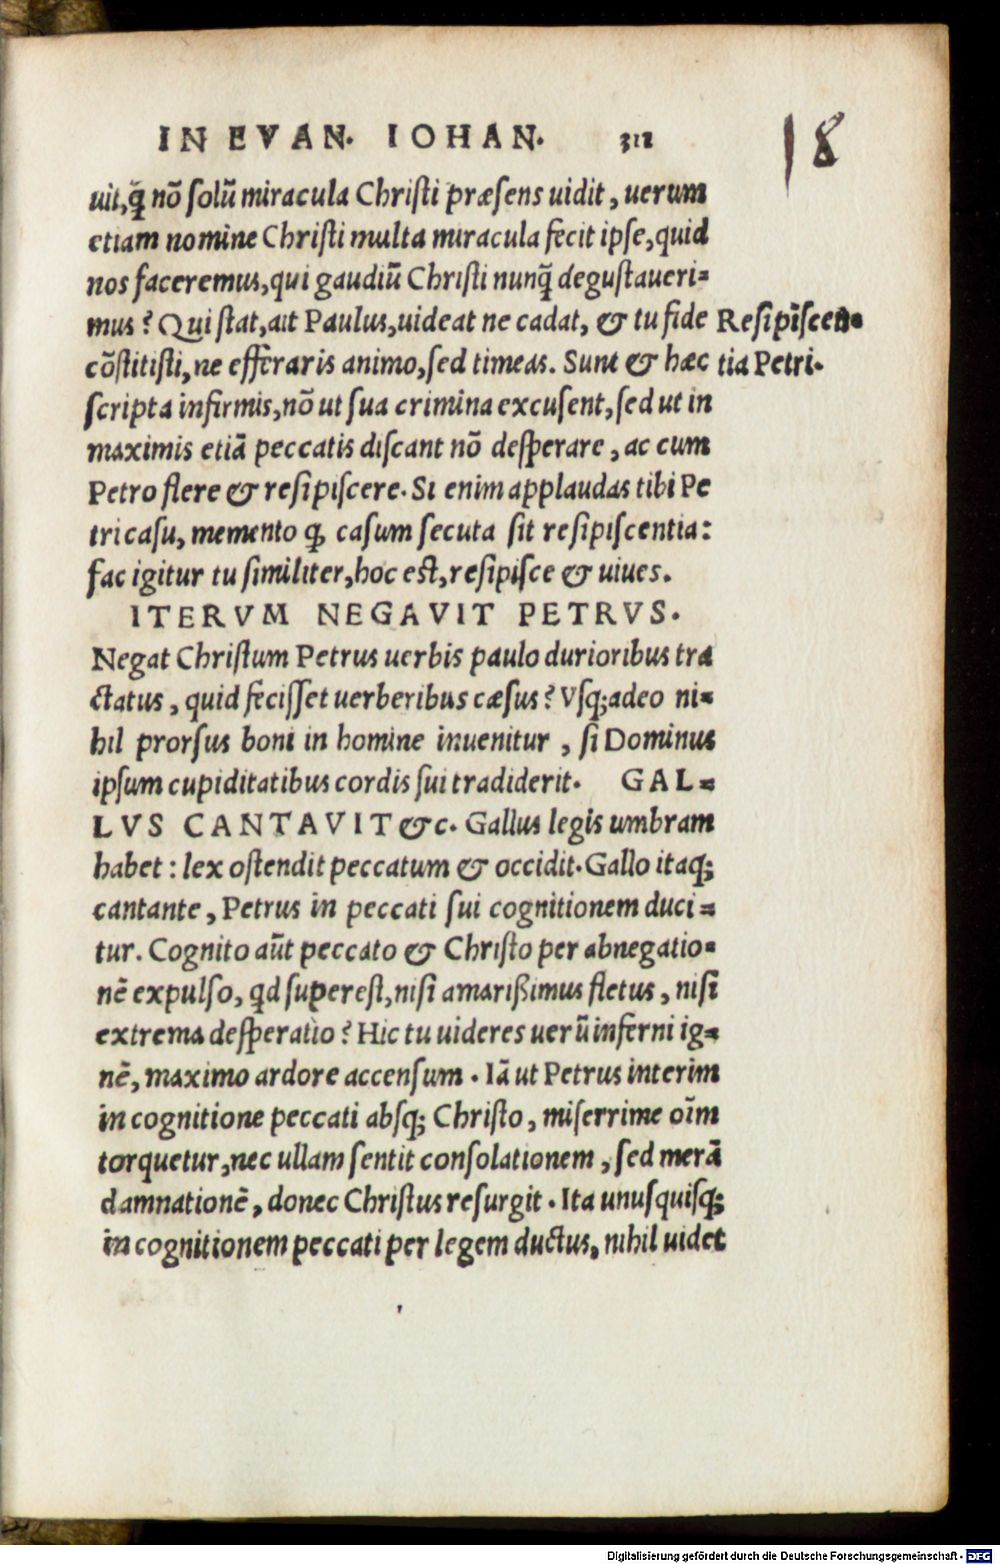 IN EVAN. IOHAN. 312
18
uit, q̃ nõ solũ miracula Christi præsens uidit, uerum
etiam nomine Christi multa miracula fecit ipse, quid
nos faceremus, qui gaudiũ Christi nunq̃ degustaueri=
mus? Qui stat, ait Paulus, uideat ne cadat, & tu fide
cõstitisti, ne efferaris animo, sed timeas. Sunt & hæc
Resipĩscen=
tia Petri.
scripta infirmis, nõ ut sua crimina excusent, sed ut in
maximis etiã peccatis discant nõ desperare, ac cum
Petro flere & resipiscere. Si enim applaudas tibi Pe
tri casu, memento ꝙ casum secuta sit resipiscentia:
fac igitur tu similiter, hoc est, resipisce & uiues.
ITERVM NEGAVIT PETRVS.
Negat Christum Petrus uerbis paulo durioribus tra
ctatus, quid fecisset uerberibus cæsus? Vsq;adeo ni=
hil prorsus boni in homine inuenitur, si Dominus
ipsum cupiditatibus cordis sui tradiderit. GAL=
LVS CANTAVIT &c. Gallus legis umbram
habet: lex ostendit peccatum & occidit. Gallo itaq;
cantante, Petrus in peccati sui cognitionem duci=
tur. Cognito aũt peccato & Christo per abnegatio=
nẽ expulso, qd superest, nisi amarißimus fletus, nisi
extrema desperatio? Hic tu uideres uerũ inferni ig=
nẽ, maximo ardore accensum. Iã ut Petrus interim
in cognitione peccati absq; Christo, miserrime oĩm
torquetur, nec ullam sentit consolationem, sed merã
damnationẽ, donec Christus resurgit. Ita unusquisq;
in cognitionem peccati per legem ductus, nihil uidet
Digitalisierung gefördert durch die Deutsche Forschungsgemeinschaft - DFG